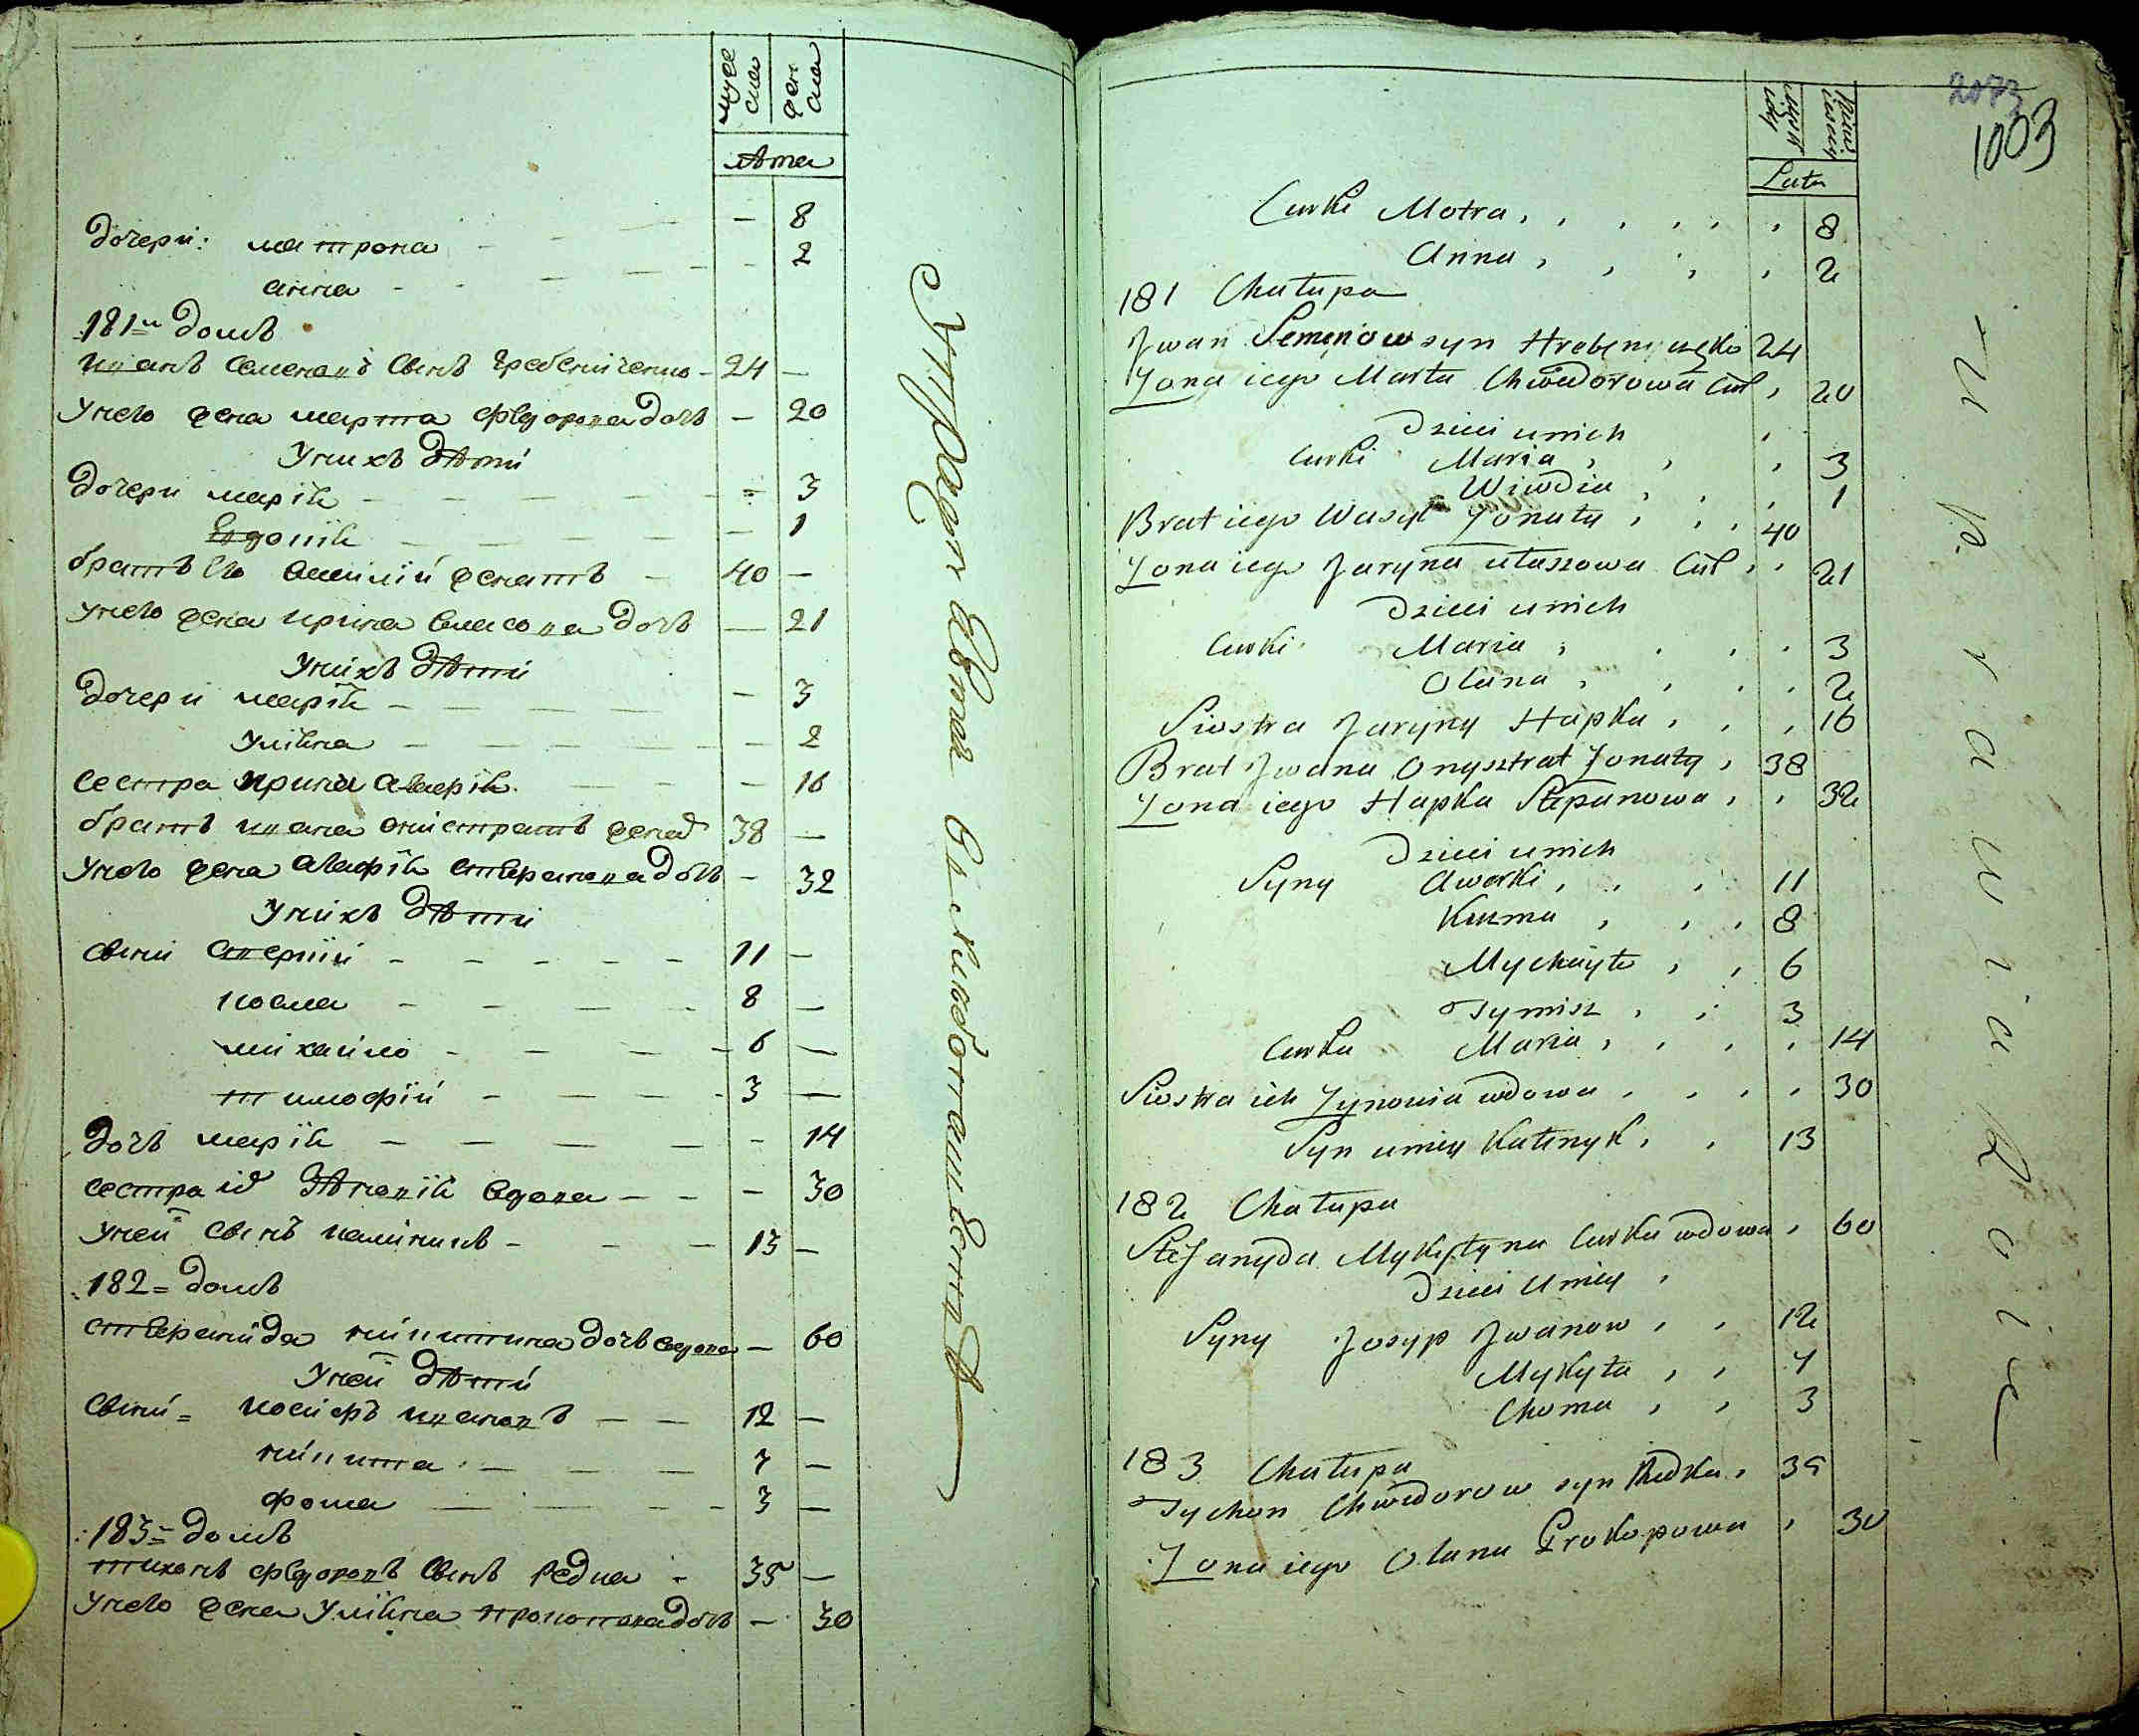 муж
ска
жен
ска
лѣта
дочери: матрона - 8
анна - 2
181й домъ
иванъ семеновъ сынъ гребениченко - 24 -
Унего жена марта федорова дочь - 20
Унихъ дѣти
дочери марія - 3
Евдокія - 1
братъ его василій женатъ - 40 -
Унего жена ирина власова дочь - 21
Унихъ дѣти
дочери марія - 3
Уліяна - 2
сестра ирина агафія - 16
братъ ивана онистратъ женат 38 -
Унего жена агафія степанова дочь - 32
Унихъ дѣти
сыни аверкій - 11 -
козма - 8 -
михайло - 6 -
тимофій - 3 -
дочь марія - 14
сестра их зѣновія вдова - 30
Уней сынъ калиникъ - 13 -
182= домъ
степанида никитина дочь вдова - 60
Уней дѣти
сыни = иосифъ ивановъ - 12 -
никита - 7 -
фома - 3 -
183= домъ
тихонъ федоровъ сынъ редка - 35 -
Унего жена Уліяна прокопова дочь - 30
2073
1003
Lata
Curki Motra, 8
Anna, 2
181 Chałupa
Jwan Semenow syn Hrebeniczeko 24
Żona iego Marta Chwedorowa Cur, 20
Dzieci unich
Curki Maria, 3
Wiwdia, 1
Brat iego Wasyl Żonaty, 40
Żona iego Jaryna Ułasowa Cur, 21
Dzieci unich
Curki Maria, 3
Olana, 2
Siostra Jaryny Hapka, 16
Brat Jwana Onysztrat Żonaty, 38
Żona iego Hapka Stepanowa, 32
Dzieci unich
Syny Awerki, 11
Kuzma, 8
Mychayło, 6
Tymisz, 3
Curka Maria, 14
Siostra ich Zynowia wdowa, 30
Syn uniey Kałenyk, 13
182 Chałupa
Stefanyda Mykytyna Curka wdowa, 60
Dzieci Uniey,
Syny Josyp Jwanow, 12
Mykyta, 7
Choma, 3
183 Chałupa
Tychon Chwedorow syn Redka, 35
Żona iego Olana Prokopowa, 30